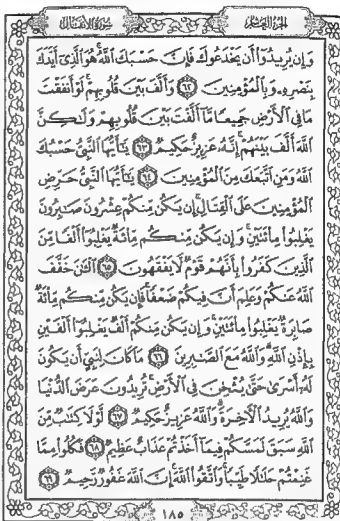 سُورَةُ الأَنفَالِ
الجُزْءُ العَاشِرُ
وَإِن يُرِيدُوٓا۟ أَن يَخْدَعُوكَ فَإِنَّ حَسْبَكَ ٱللَّهُ ۚ هُوَ ٱلَّذِىٓ أَيَّدَكَ
بِنَصْرِهِۦ وَبِٱلْمُؤْمِنِينَ ٦٢ وَأَلَّفَ بَيْنَ قُلُوبِهِمْ ۚ لَوْ أَنفَقْتَ
مَا فِى ٱلْأَرْضِ جَمِيعًا مَّآ أَلَّفْتَ بَيْنَ قُلُوبِهِمْ وَلَـٰكِنَّ
ٱللَّهَ أَلَّفَ بَيْنَهُمْ ۚ إِنَّهُۥ عَزِيزٌ حَكِيمٌ ٦٣ يَـٰٓأَيُّهَا ٱلنَّبِىُّ حَسْبُكَ
ٱللَّهُ وَمَنِ ٱتَّبَعَكَ مِنَ ٱلْمُؤْمِنِينَ ٦٤ يَـٰٓأَيُّهَا ٱلنَّبِىُّ حَرِّضِ
ٱلْمُؤْمِنِينَ عَلَى ٱلْقِتَالِ ۚ إِن يَكُن مِّنكُمْ عِشْرُونَ صَـٰبِرُونَ
يَغْلِبُوا۟ مِا۟ئَتَيْنِ ۚ وَإِن يَكُن مِّنكُم مِّا۟ئَةٌ يَغْلِبُوٓا۟ أَلْفًا مِّنَ
ٱلَّذِينَ كَفَرُوا۟ بِأَنَّهُمْ قَوْمٌ لَّا يَفْقَهُونَ ٦٥ ٱلْـَٔـٰنَ خَفَّفَ
ٱللَّهُ عَنكُمْ وَعَلِمَ أَنَّ فِيكُمْ ضَعْفًا ۚ فَإِن يَكُن مِّنكُم مِّا۟ئَةٌ
صَابِرَةٌ يَغْلِبُوا۟ مِا۟ئَتَيْنِ ۚ وَإِن يَكُن مِّنكُمْ أَلْفٌ يَغْلِبُوٓا۟ أَلْفَيْنِ
بِإِذْنِ ٱللَّهِ ۗ وَٱللَّهُ مَعَ ٱلصَّـٰبِرِينَ ٦٦ مَا كَانَ لِنَبِىٍّ أَن يَكُونَ
لَهُۥٓ أَسْرَىٰ حَتَّىٰ يُثْخِنَ فِى ٱلْأَرْضِ ۚ تُرِيدُونَ عَرَضَ ٱلدُّنْيَا
وَٱللَّهُ يُرِيدُ ٱلْـَٔاخِرَةَ ۗ وَٱللَّهُ عَزِيزٌ حَكِيمٌ ٦٧ لَّوْلَا كِتَـٰبٌ مِّنَ
ٱللَّهِ سَبَقَ لَمَسَّكُمْ فِيمَآ أَخَذْتُمْ عَذَابٌ عَظِيمٌ ٦٨ فَكُلُوا۟ مِمَّا
غَنِمْتُمْ حَلَـٰلًا طَيِّبًا ۚ وَٱتَّقُوا۟ ٱللَّهَ ۚ إِنَّ ٱللَّهَ غَفُورٌ رَّحِيمٌ ٦٩
١٨٥